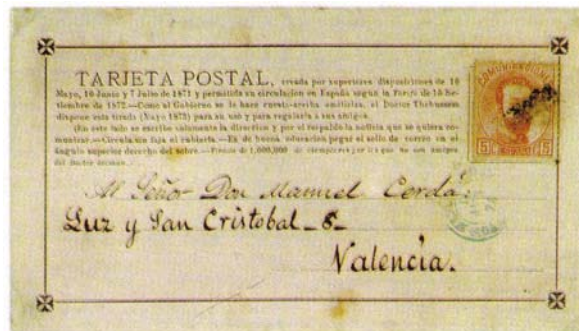 TARJETA POSTAL, creada por superiores disposiciones de 10
Mayo, 10 Junio y 7 Julio de 1871 y permitida su circulacion en España segun la de 15 Se-
tiembre de 1872.—Como al Gobierno se le hace cuesta-arriba emitirlas, el Doctor Thebussem
dispone esta tirada (Mayo 1873) para su uso y para regalarla á sus amigos.
(En este lado se escribe solamente la direccion y por el respaldo la noticia que se quiera co-
municar.—Circula sin pegar ni cubierta.—Es de buena educacion pegar el sello de correo en el
ángulo superior derecho del sobre.—Precio de 1,000,000 de para los que no son amigos
del doctor
COMUNICACIONES
5 ESPAÑA 5
Al Señor Don Manuel Cerdá.
Luz y San Cristobal_8_
Valencia.